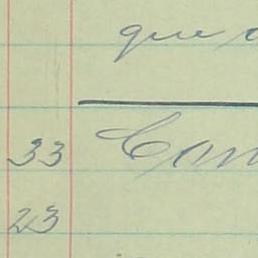 que
33 Con
23